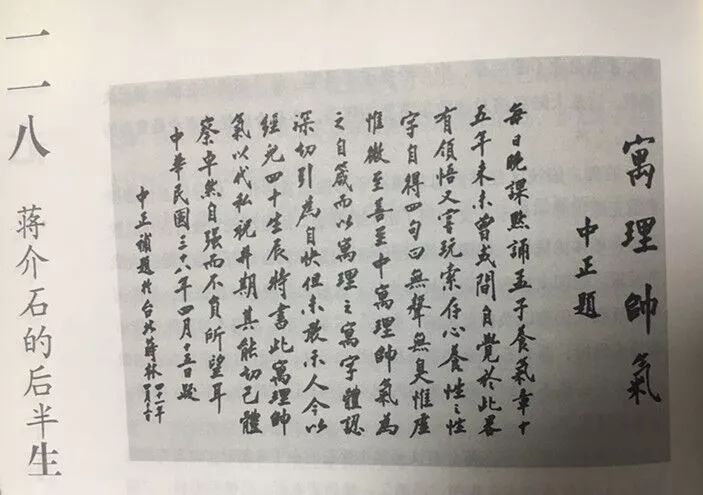 一一八 蒋介石的后半生
寓理帥氣
中正題
每日晚課默誦孟子養氣章十
五年來未曾或間自覺於此畧
有領悟又嘗玩索存心養性之性
字自得四句曰無聲無臭惟虛
惟微至善至中寓理帥氣為
之自箴而以寓理之寓字體認
深切引為自快但未敢示人今以
經兒四十生辰特書此寓理帥
氣以代私祝并期其能切己體
察卓然自強而不負所望耳
中華民國三十八年四月十五日題
中正補題於台北蔣林 四十一年